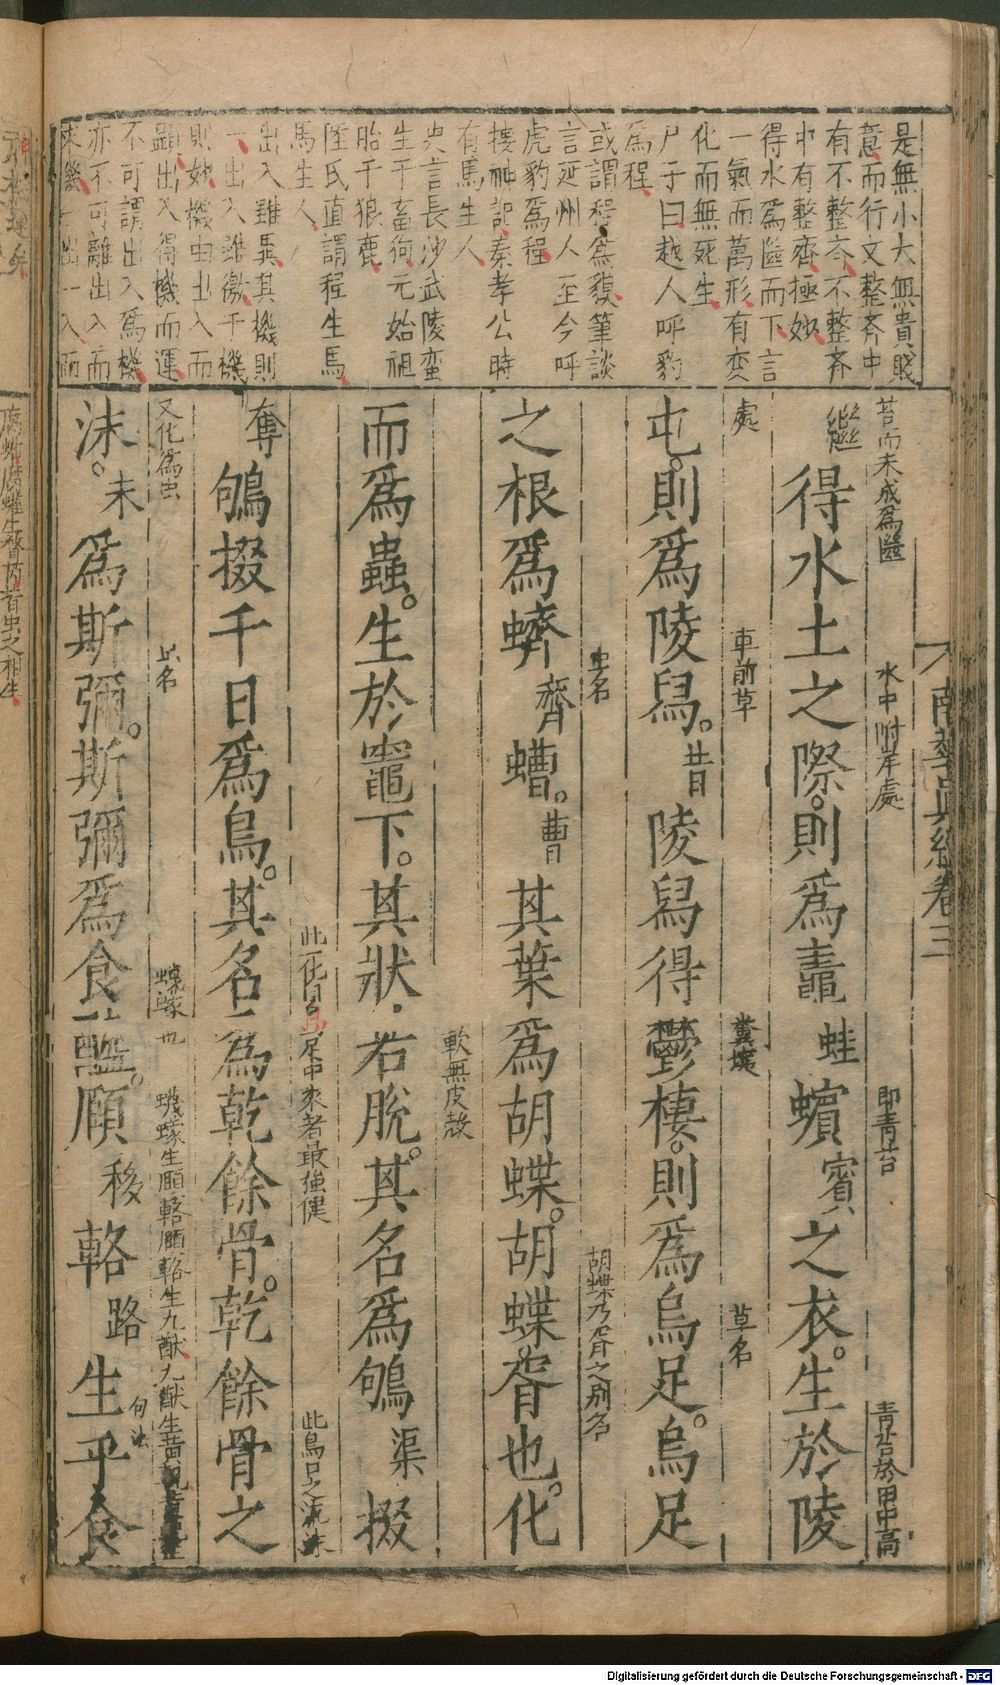 是無小大無貴賤
意而行文整齊中
有不整齊不整齊
中有整齊極妙
得水為㡭而下言
一氣而萬形有変
化而無死生
尸子曰越人呼豹
為程
或謂程為貘筆談
言延州人至今呼
虎豹為程
搜神記秦孝公時
有馬生人
史言長沙武陵蛮
生于畜狗元始祖
胎于狼鹿
陸氏直謂程生馬
馬生人
出入雖異其機則
一出入雖微于機
則妙機由出入而
顯出入得機而運
不可謂出入為機
亦不可離出入而
求機一出一入而
南華真經卷三
苔而未成為㡭
水中附岸處
即青苔
青苔於田中高
繼得水土之際。則為鼃蛙蠙賓之衣。生於陵
處
車前草
糞壤
草名
屯。則為陵舄。昔陵舄得鬱棲。則為烏足。烏足
虫名
胡蝶乃胥之別名
之根為蠐齊螬。曹其葉為胡蝶。胡蝶。胥也。化
軟無皮殼
而為蟲。生於竈下。其狀若脫。其名為鴝渠掇
此一化自足中來者最強健
此鳥口之流沫
奪鴝掇千日為鳥。其名為乾餘骨。乾餘骨之
又化為虫
虫名
蠛蠓也
蠛蠓生頤輅頤輅生九猷九猷生黃
句法
沫。未為斯彌。斯彌為食醯。頤移輅路生乎食
Digitalisierung gefördert durch die Deutsche Forschungsgemeinschaft - DFG